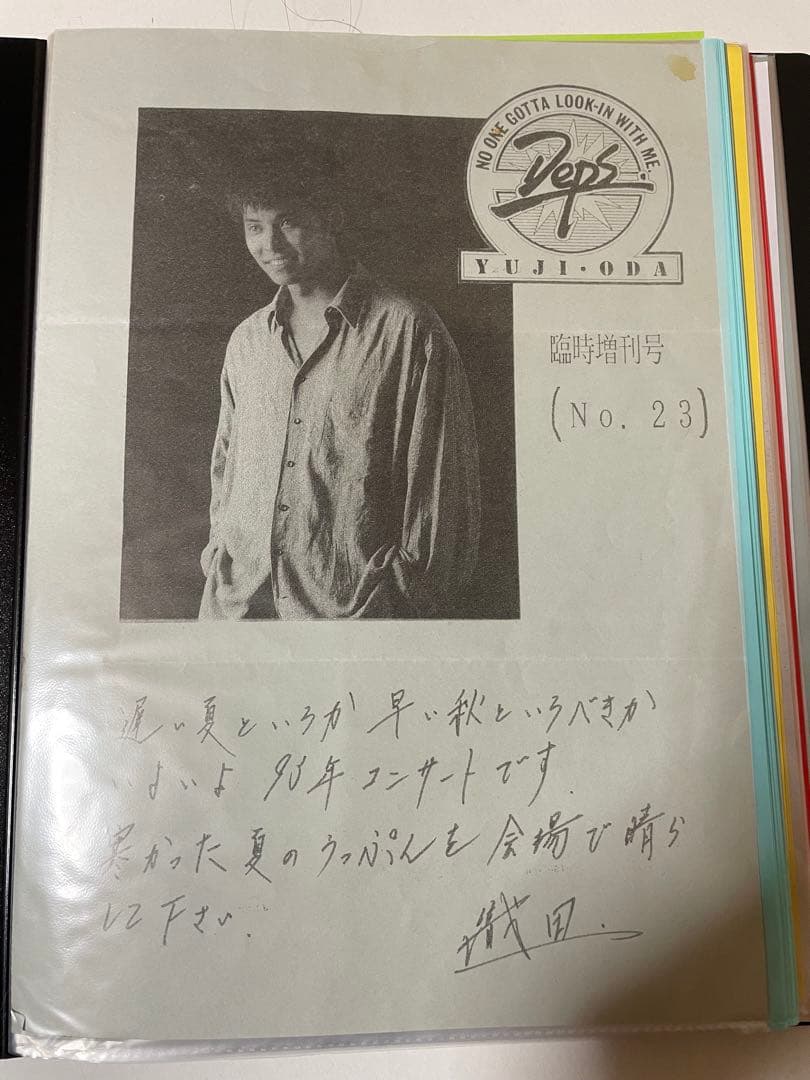 NO ONE GOTTA LOOK-IN WITH ME.
Deps.
YUJI・ODA
臨時増刊号
(No. 23)
遅い夏というか 早い秋というべきか
いよいよ 93年 コンサートです.
寒かった夏のうっぷんを 会場で晴ら
して下さい.
織田.